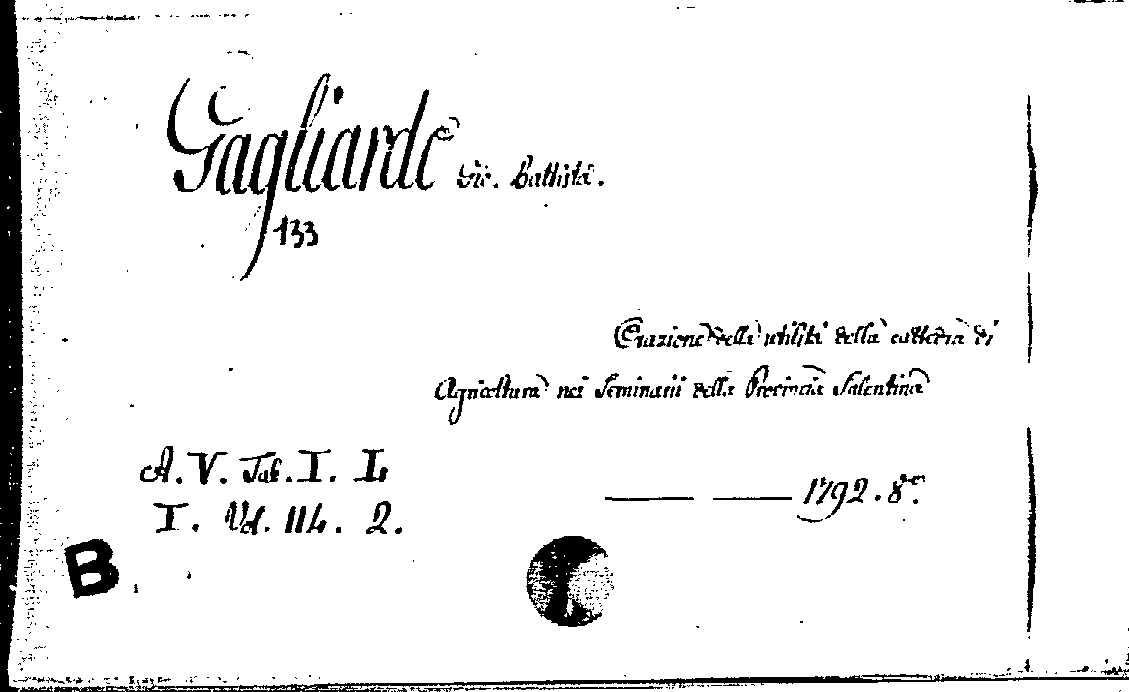 Gagliardo Gio. Battista.
133
Orazione della utilità della cattedra di
Agricoltura nei Seminarii della Provincia Salentina
A. V. Tab. I. L
I. Vol. 114. 2.
— — 1792. 8º.
B